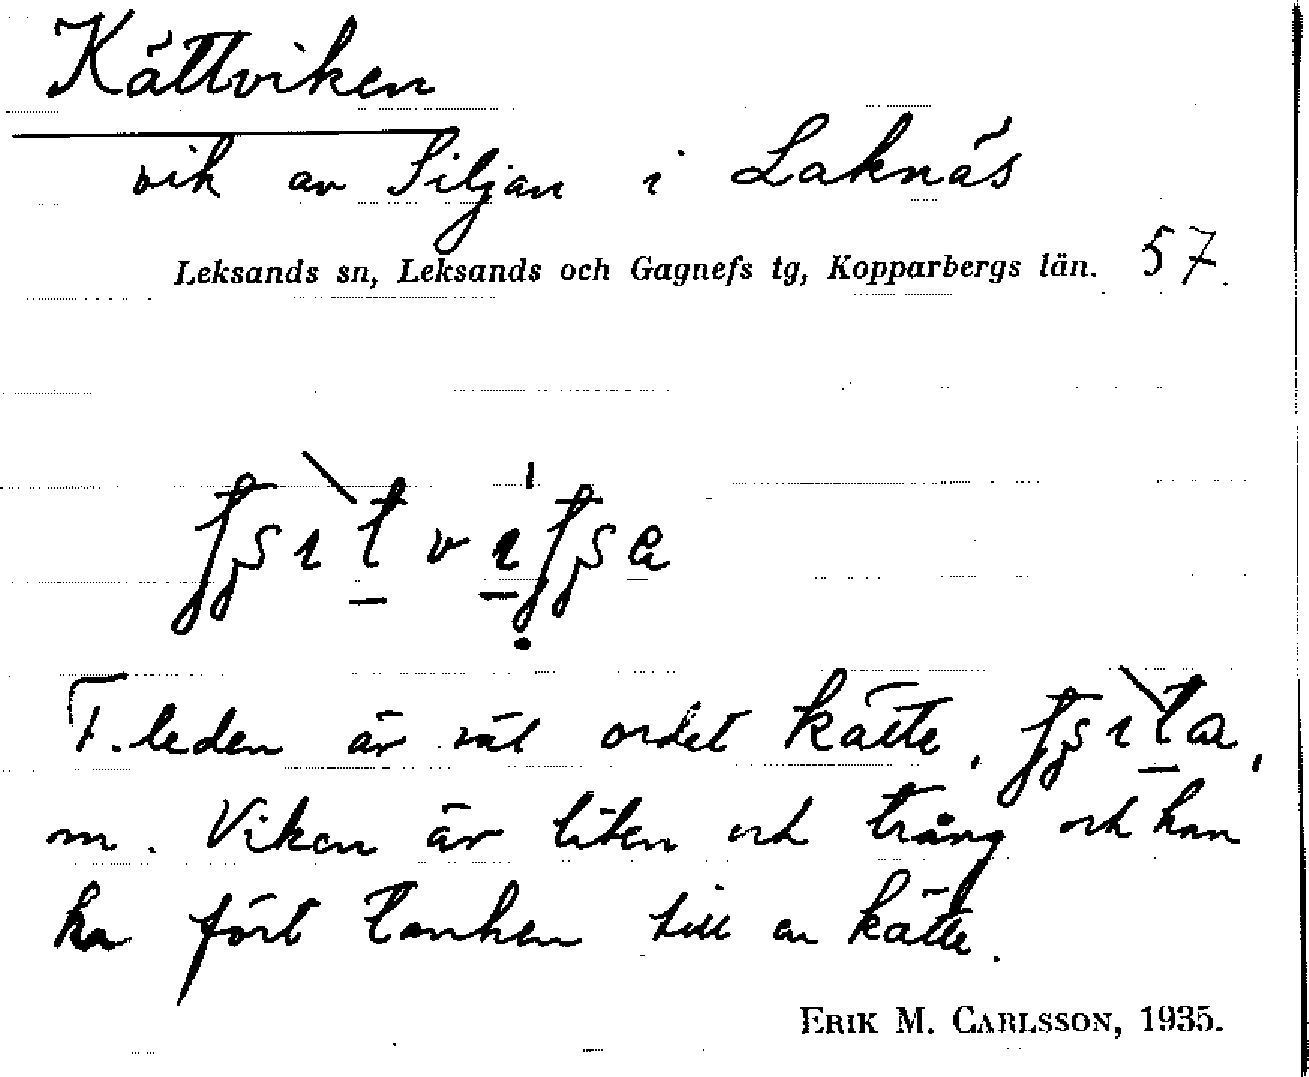 Kättviken
vik av Siljan i Laknäs
Leksands sn, Leksands och Gagnefs tg, Kopparbergs län. 57
F. leden är väl ordet kätte,
m. Viken är liten och trång och kan
ha fört tanken till en kätte.
ERIK M. CARLSSON, 1935.